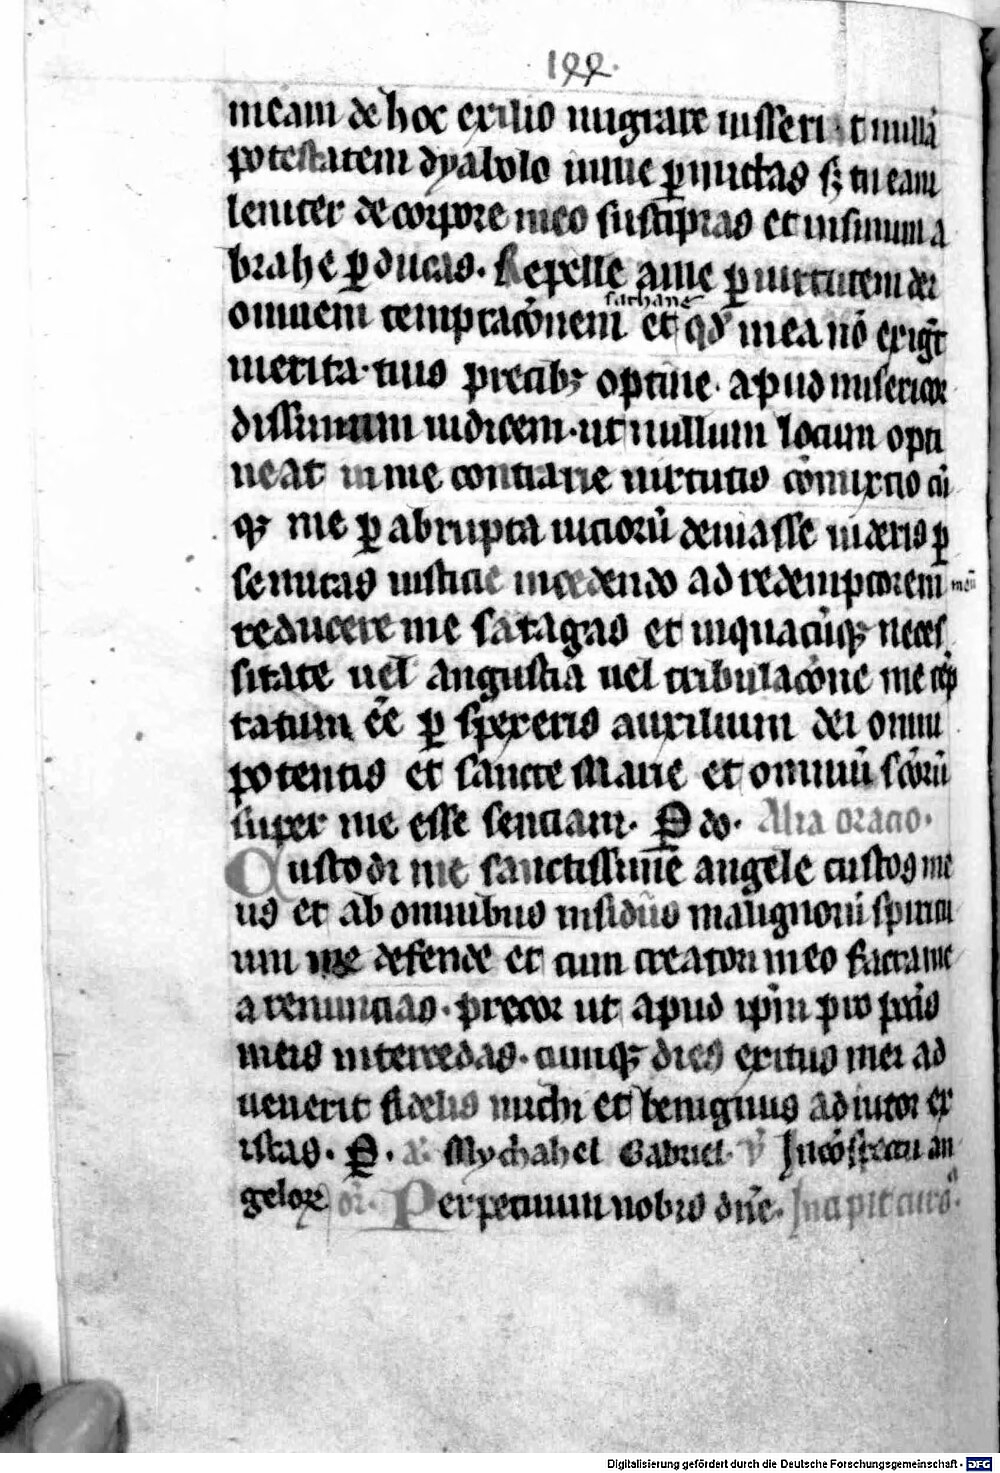 199.
meam de hoc exilio migrare iusserit nullā
potestatem dyabolo in me ꝑmittas sꝫ tu eam
leniter de corpore meo suscipias et in sinum a
brahe ꝑducas. Repelle a me ꝑ uirtutem dei
omnem temptacōnem sathane et qđ mea nō exigūt
merita. tuis precibꝫ optine. apud misericor
dissimum iudicem. ut nullum locum opti
neat in me contrarie uirtutis cōmixtio cū
qꝫ me ꝑ abrupta uiciorū deuiasse uideris ꝑ
semitas iusticie incedendo ad redemptorem meū
reducere me satagas et in quacūqꝫ neces
sitate uel angustia uel tribulacōne me cōp
tatum eē ꝑ spexeris auxilium dei omni
potentis et sancte Marie et omniū scōrū
super me esse senciam. P do. Alia oracio.
Custodi me sanctissime angele custos me
us et ab omnibus insidiis malignorū spiritu
um me defende et cum creatori meo facta me
a renuncias. precor ut apud ipm̄ pro pccīs
meis intercedas. cumqꝫ dies exitus mei ad
uenerit fidelis michi et benignus adiutor ex
istas. P. a. Mychahel Gabriel. v In cōspectu an
gelorꝫ or. Perpetuum nobis dn̄e. Incipit curs9.
Digitalisierung gefördert durch die Deutsche Forschungsgemeinschaft - DFG